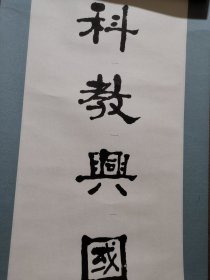 科教興國